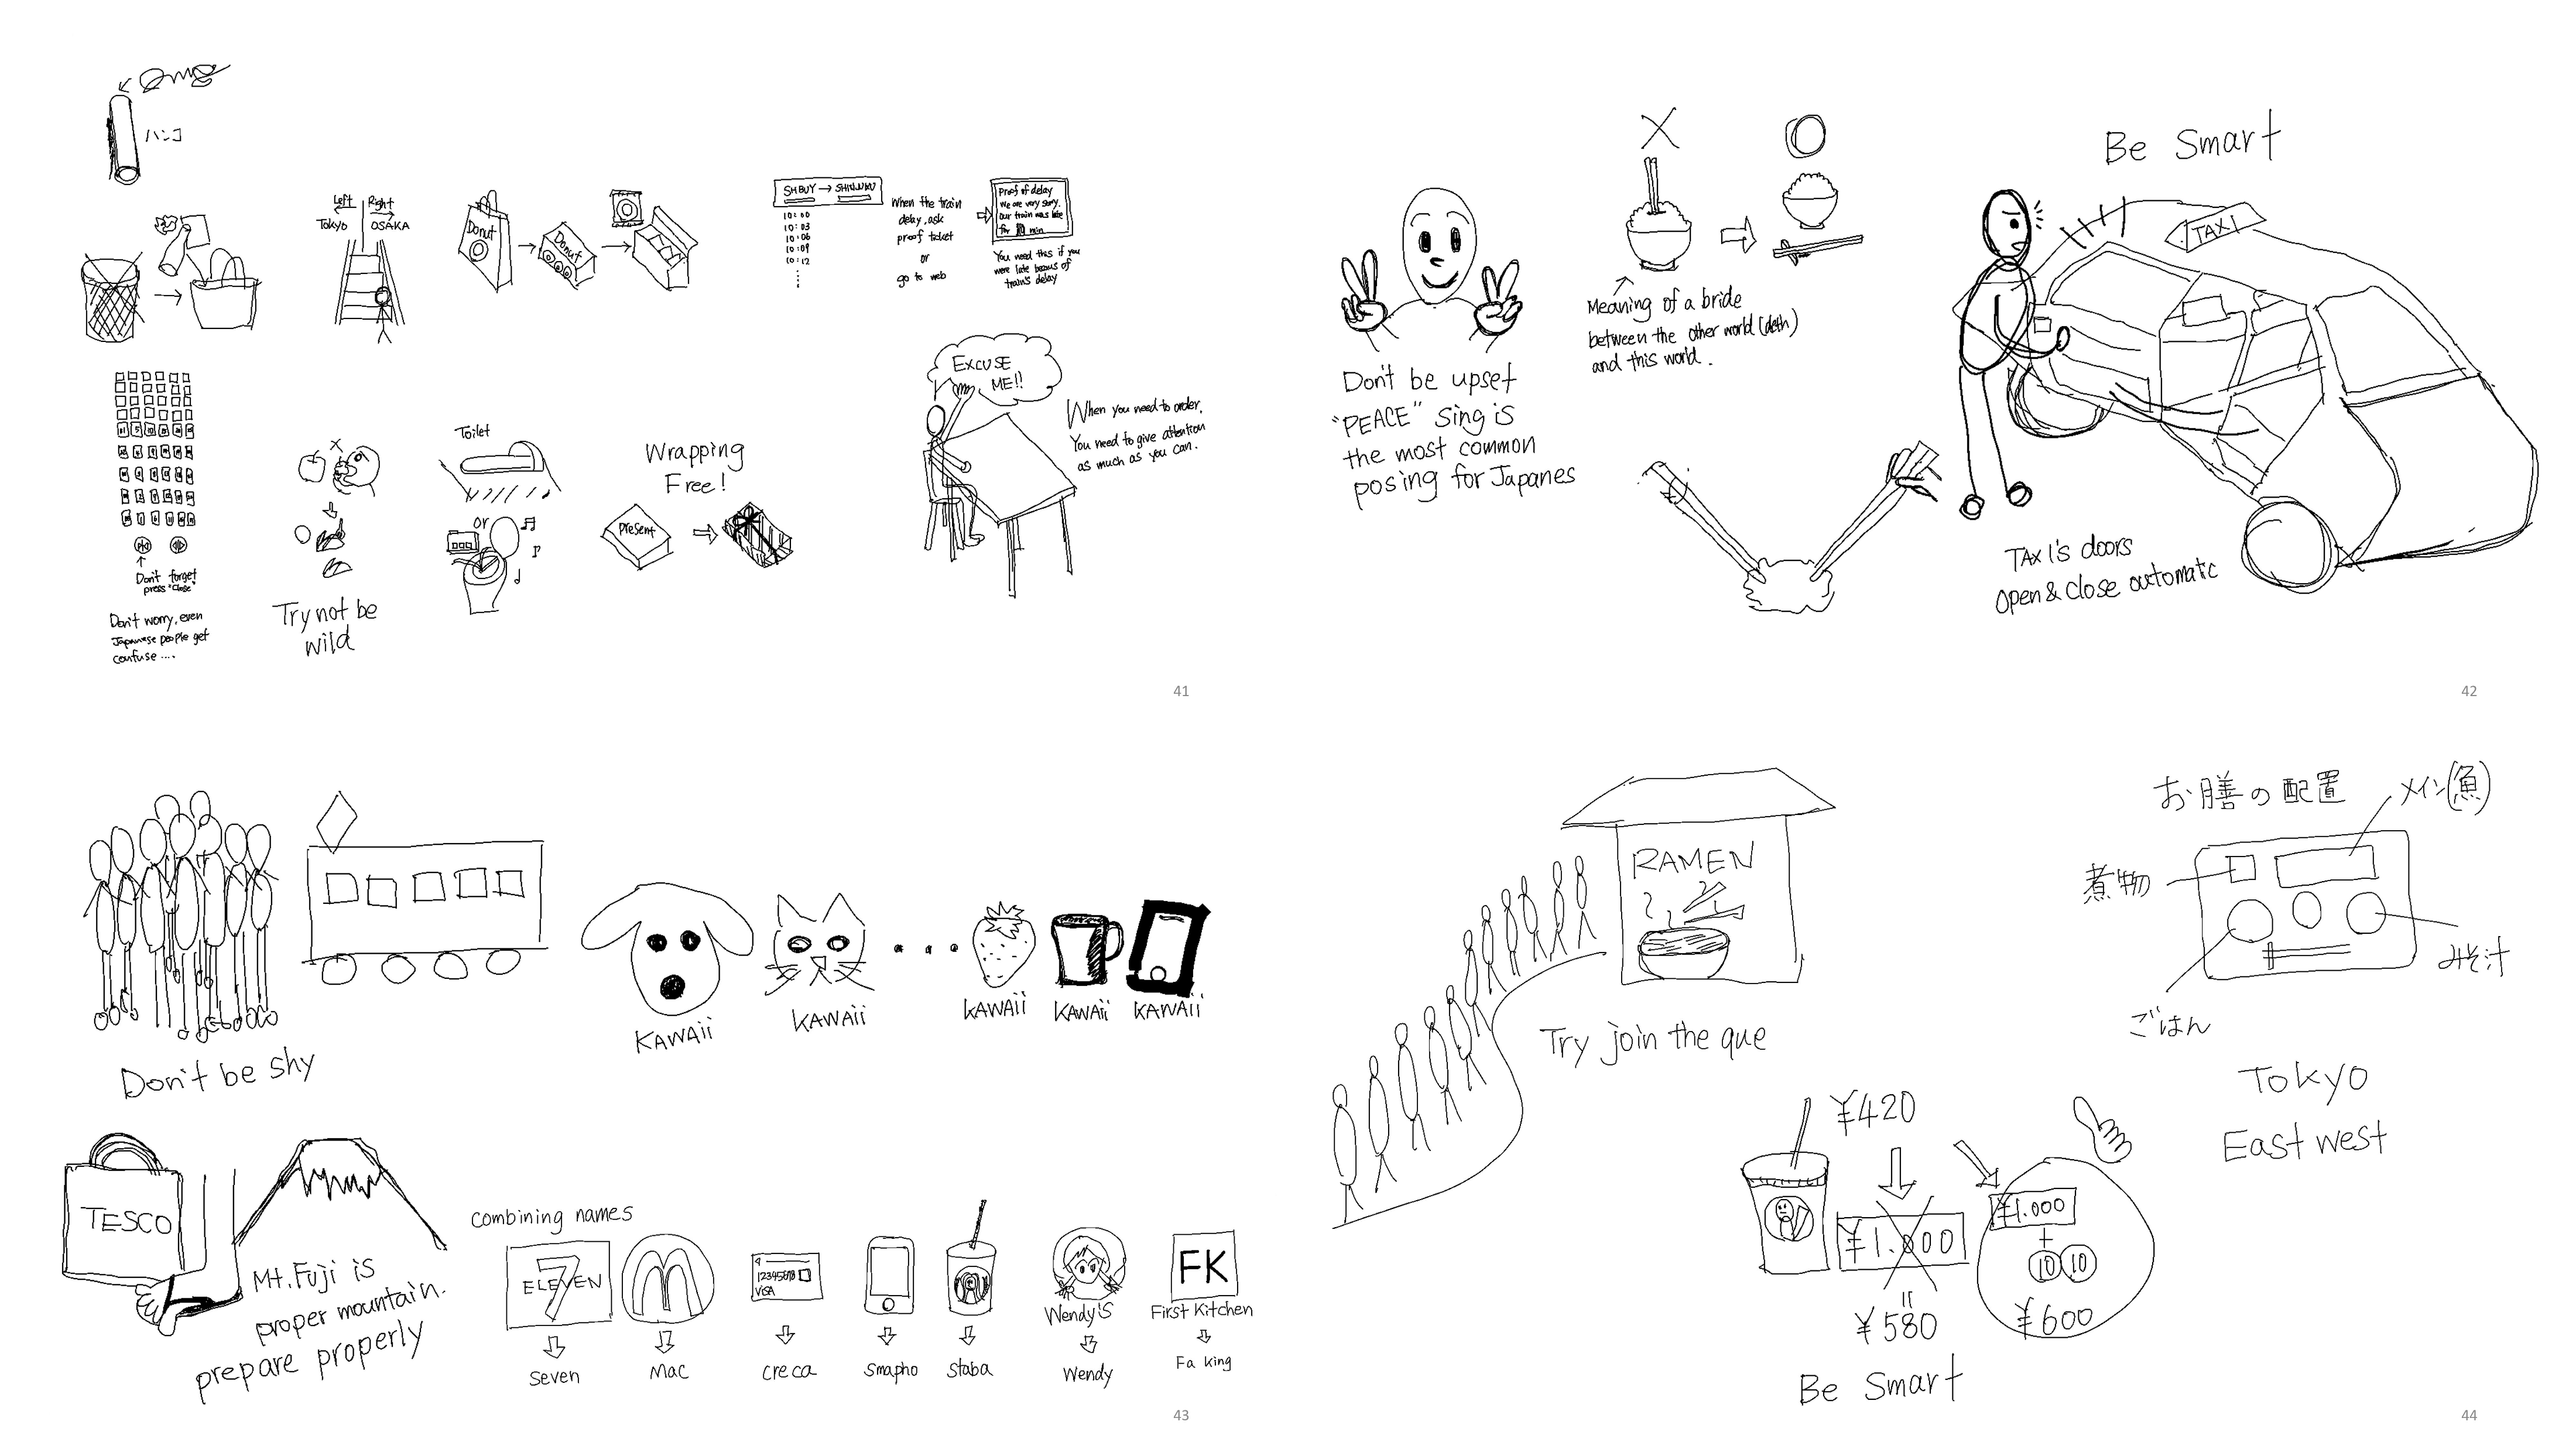 ハンコ
Left Right
Tokyo OSAKA
Donut
Donut
SHIBUY → SHINJUKU
10:00
10:03
10:06
10:09
10:12
When the train
delay, ask
proof ticket
or
go to web
Proof of delay
We are very sorry.
Our train was late
for min
You need this if you
were late becaus of
train's delay
Don't forget
press "Close"
Don't worry, even
Japanese people get
confuse ....
Try not be
wild
Toilet
or
Wrapping
Free!
Present
EXCUSE
ME!!
When you need to order,
You need to give attention
as much as you can.
41
Don't be upset
"PEACE" Sing is
the most common
posing for Japanes
Meaning of a bride
between the other world (deth)
and this world.
Be Smart
TAXI
TAXI's doors
open & close automatic
42
Don't be shy
KAWAii
KAWAii
KAWAii
KAWAii
KAWAii
TESCO
Mt.Fuji is
proper mountain.
prepare properly
Combining names
7
ELEVEN
Seven
Mac
12345678
VISA
creca
Smapho
Staba
Wendy's
Wendy
FK
First Kitchen
Fa king
43
RAMEN
Try join the que
お膳の配置
メイン(魚)
煮物
みそ汁
ごはん
Tokyo
East west
¥420
¥1.000
¥580
¥1.000
+
10 10
¥600
Be Smart
44